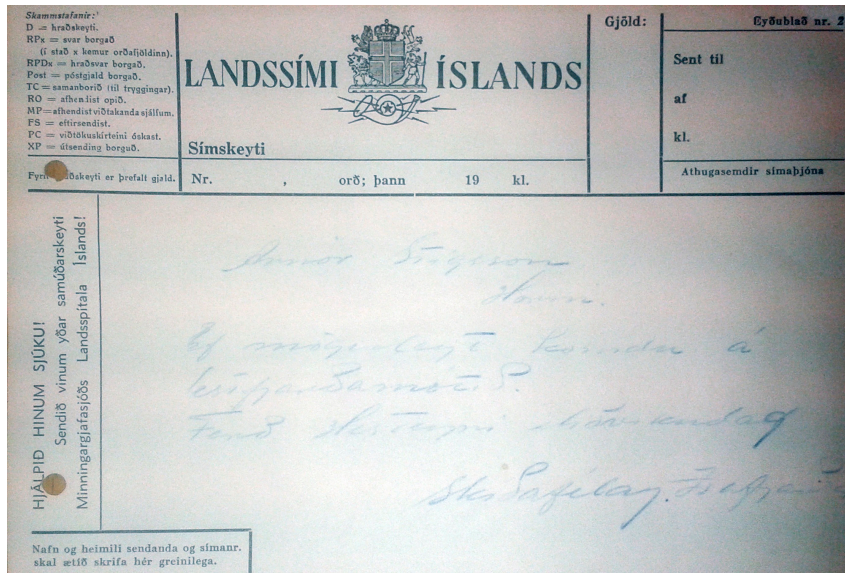 Skammstafanir:
D = hraðskeyti.
RPx = svar borgað
(í stað x kemur orðafjöldinn).
RPDx = hraðsvar borgað.
Post = póstgjald borgað.
TC = samanborið (til tryggingar).
RO = afhendist opið.
MP = afhendist viðtakanda sjálfum.
FS = eftirsendist.
PC = viðtökuskírteini óskast.
XP = útsending borguð.
er þrefalt gjald.
LANDSSÍMI ÍSLANDS
Símskeyti
Nr. , orð; þann 19 kl.
Gjöld:
Eyðublað nr. 2
Sent til
af
kl.
Athugasemdir símaþjóna
HJÁLPIÐ HINUM SJÚKU!
Sendið vinum yðar samúðarskeyti
Minningargjafasjóðs Landsspítala Íslands!
Arnór
Ef mögulegt komdu á
Skíðafélag
Nafn og heimili sendanda og símanr.
skal ætíð skrifa hér greinilega.